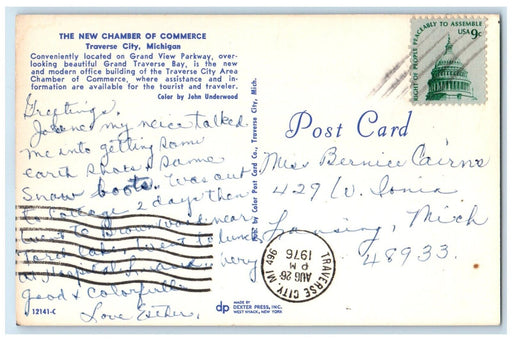 THE NEW CHAMBER OF COMMERCE
Traverse City, Michigan
Conveniently located on Grand View Parkway, over-
looking beautiful Grand Traverse Bay, is the new
and modern office building of the Traverse City Area
Chamber of Commerce, where assistance and in-
formation are available for the tourist and traveler.
Color by John Underwood
Greetings,
my neice talked
me into getting some
earth shoes & some
Snow boots. Was out
to Cottage 2 days then
went to near
Torch Lake, went to lunch
at Hospital, very
good & colorful.
Love Esther.
12141-C
Pub. by Color Post Card Co., Traverse City, Mich.
dp
MADE BY
DEXTER PRESS, INC.
WEST NYACK, NEW YORK
RIGHT OF PEOPLE PEACEABLY TO ASSEMBLE
USA 9c
Post Card
Miss Bernice Cairns
429 W. Ionia
Lansing, Mich
48933.
TRAVERSE CITY, MI 496
AUG 26
PM
1976